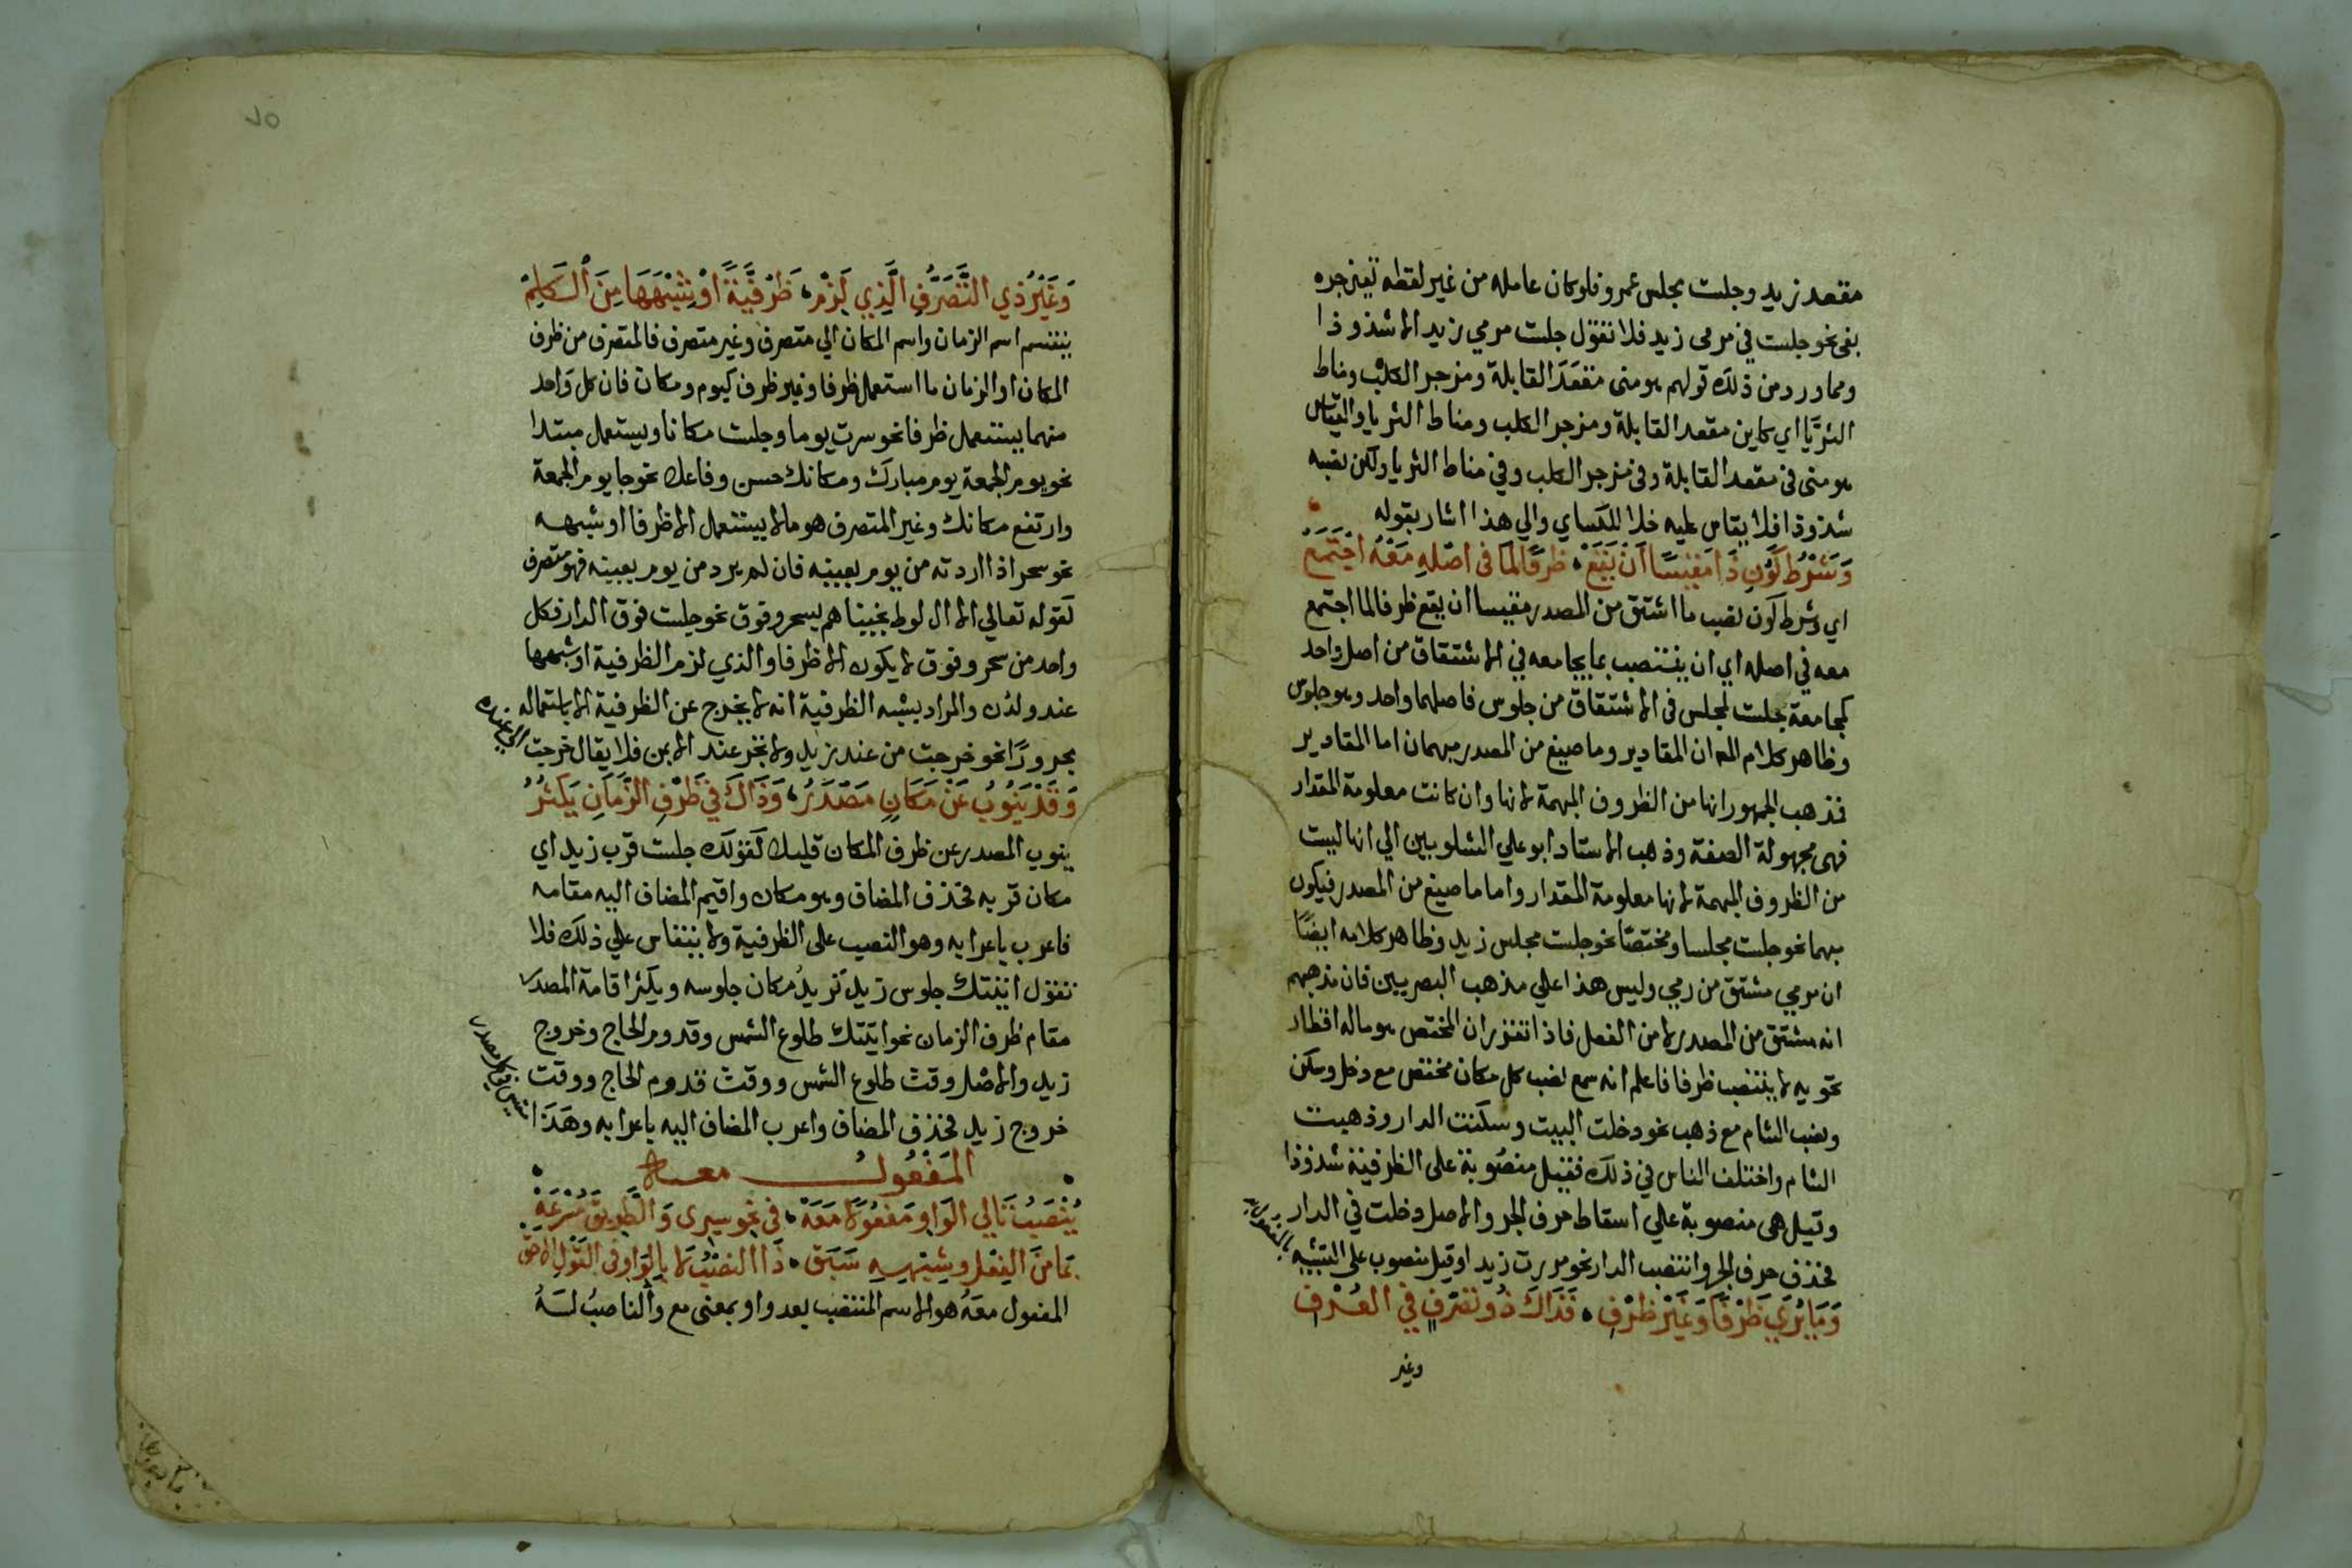 مقعد زيد وجلست مجلس عمرو فلو كان عامله من غير لفظه تعين جره
بفى نحو جلست في مرمى زيد فلا تقول جلست مرمي زيد الا شذوذا
ومما ورد من ذلك قولهم هو منى مقعد القابلة ومزجر الكلب ومناط
الثريا اي كاين مقعد القابلة ومزجر الكلب ومناط الثريا والقياس
هو منى فى مقعد القابلة وفى مزجر الكلب وفي مناط الثريا ولكن نصبه
شذوذا فلا يقاس عليه خلا للكساي والي هذا اشار بقوله
وَشَرْطُ كَوْنِ ذَا مَقِيْسًا اَنْ يَقَعْ ، ظرفًا لِمَا فى اصْلِهِ مَعْهُ اجْتَمَعْ
اي وشرط كون نصب ما اشتق من المصدر مقيسا ان يقع ظرفا لما اجتمع
معه في اصله اي ان ينتصب بما يجامعه في الاشتقاق من اصل واحد
كمجامعة جلست لمجلس فى الاشتقاق من جلوس فاصلهما واحد وهو جلوس
وظاهر كلام المه ان المقادير وما صيغ من المصدر مبهمان اما المقادير
فذهب الجمهور انها من الظروف المبهمة لانها وان كانت معلومة المقدار
فهى مجهولة الصفة وذهب الاستاد ابو علي الشلوبين الي انها ليست
من الظروف المبهمة لانها معلومة المقدار واما ما صيغ من المصدر فيكون
مبهما نحو جلست مجلسا ومختصًا نحو جلست مجلس زيد وظاهر كلامه ايضًا
ان مرمي مشتق من رمي وليس هذا علي مذهب البصريين فان مذهبهم
انه مشتق من المصدر لا من الفعل فاذا تقرر ان المختص هو ماله اقطار
تحويه لا ينتصب ظرفا فاعلم انه سمع نصب كل مكان مختص مع دخل وسكن
ونصب الشام مع ذهب نحو دخلت البيت وسكنت الدار وذهبت
الشام واختلف الناس في ذلك فقيل منصوبة على الظرفية شذوذا
وقيل هى منصوبة علي اسقاط حرف الجر والاصل دخلت في الدار
فحذف حرف الجر وانتصب الدار نحو مررت زيد اوقيل منصوب على التشبيه
بالمفعول به
وَمَا يُرَي ظَرْفًا وَغَيْرَ ظَرْفِ ، فَذَاكَ ذُو تَصَرُّفٍ فِي العُرْفِ
وغير
وَغَيْرُ ذِي التَّصَرُّفِ الَّذِي لَزِمْ ، ظَرْفِيَّةً اَوْ شِبْهَهَا مِنَ الْكَلِمْ
ينقسم اسم الزمان واسم المكان الي متصرف وغير متصرف فالمتصرف من ظرف
المكان او الزمان ما استعمل ظرفا وغير ظرف كيوم ومكان فان كل واحد
منهما يستعمل ظرفا نحو سرت يوما وجلست مكانا ويستعمل مبتدا
نحو يوم الجمعة يوم مبارك ومكانك حسن وفاعلا نحو جا يوم الجمعة
وارتفع مكانك وغير المتصرف هو مالا يستعمل الا ظرفا او شبهه
نحو سحر اذا اردته من يوم بعينه فان لم يرد من يوم بعينه فهو متصرف
كقوله تعالي الا ال لوط نجيناهم بسحر وفوق نحو جلست فوق الدار فكل
واحد من سحر وفوق لا يكون الا ظرفا والذي لزم الظرفية او شبهها
عند ولدن والمراد بشبه الظرفية انه لا يخرج عن الظرفية الا باستعماله
مجرورًا نحو خرجت من عند زيد ولا تجر عند الا بمن فلا يقال خرجت
الي عنده
وَقَدْ يَنُوبُ عَنْ مَكَانٍ مَصْدَرُ ، وَذَاكَ فِي ظَرْفِ الزَّمَانِ يَكْثُرُ
ينوب المصدر عن ظرف المكان قليلا كقولك جلست قرب زيد اي
مكان قربه فحذف المضاف وهو مكان واقيم المضاف اليه مقامه
فاعرب باعرابه وهو النصب على الظرفية ولا ينقاس علي ذلك فلا
تقول اتيتك جلوس زيد تريد مكان جلوسه ويكثر اقامة المصدر
مقام ظرف الزمان نحو اتيتك طلوع الشمس وقدوم الحاج وخروج
زيد والاصل وقت طلوع الشمس ووقت قدوم الحاج ووقت
خروج زيد فحذف المضاف واعرب المضاف اليه باعرابه وهَذَا
المَفْعُولُ معه
يُنْصَبُ تَالِي الوَاوِ مَفْعُولًا مَعَهْ ، فى نَحْوِ سِيرِى وَالطَّرِيقَ مُسْرِعَهْ
بِمَا مِنَ الفِعْلِ وشِبْهِهِ سَبَقْ ، ذَا النَّصْبُ لَا بِالوَاوِ فى القَوْلِ الاحَقّ
المفعول معَهُ هو الاسم المنتصب بعد واو بمعنى مع والناصبُ لَهُ